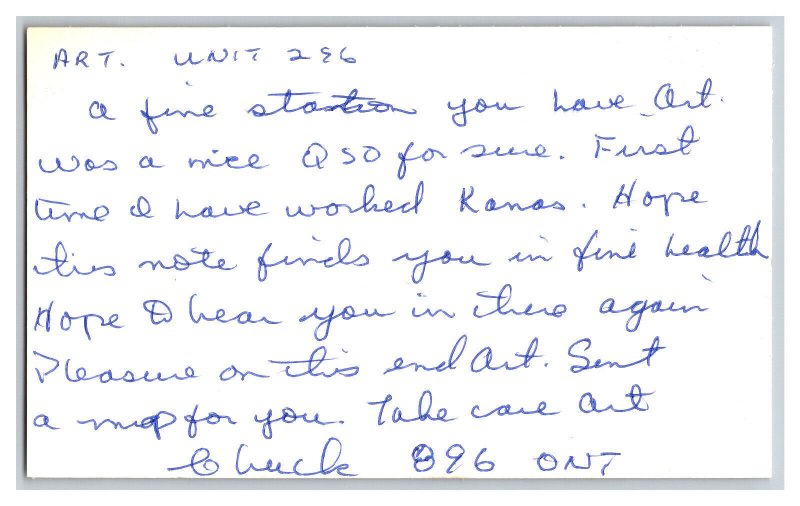 ART. UNIT 296
a fine station you have Art.
was a nice QSO for sure. First
time I have worked Kanas. Hope
this note finds you in fine health
Hope to hear you in there again
Pleasure on this end Art. Sent
a map for you. Take care Art
Chuck 896 ONT